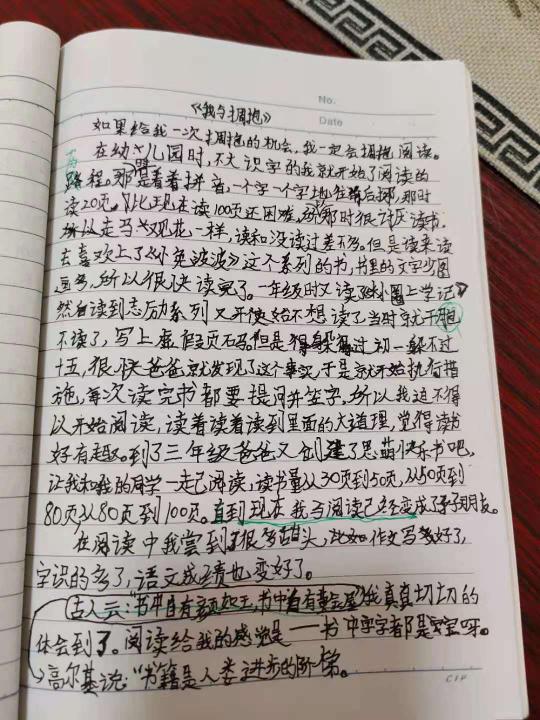 No.
Date
《我与拥抱》
如果给我一次拥抱的机会，我一定会拥抱阅读。
在幼儿园时，不大识字的我就开始了阅读的
路程。那是看着拼音，一个字一个字地往前后挪，那时
读20页，比现在读100页还困难，那时很讨厌读书，
所以走马观花一样，读和没读过差不多。但是读来读
去喜欢上了《小兔波波》这个系列的书，书里的文字少图
画多，所以很快读完了。一年级时又读了《小圈上学记》
然后读到励志系列又开始不想读了，当时就干脆
不读了，写上虚假页码。但是躲得过初一躲不过
十五，很快爸爸就发现了这个事实，于是就开始执行措
施，每次读完书都要提问并签字，所以我迫不得
以开始阅读，读着读着读到里面的大道理，觉得读书
好有趣。到了三年级爸爸又创建了思萌快乐书吧，
让我和我的同学一起阅读，读书量从30页到50页，从50页到
80页，从80页到100页。直到现在我与阅读已经变成了好朋友。
在阅读中我尝到了很多甜头，比如作文写多好了，
字识的多了，语文成绩也变好了。
古人云："书中自有颜如玉，书中自有黄金屋"我真真切切的
体会到了。阅读给我的感觉是——书中字字都是宝呀。
高尔基说："书籍是人类进步的阶梯。